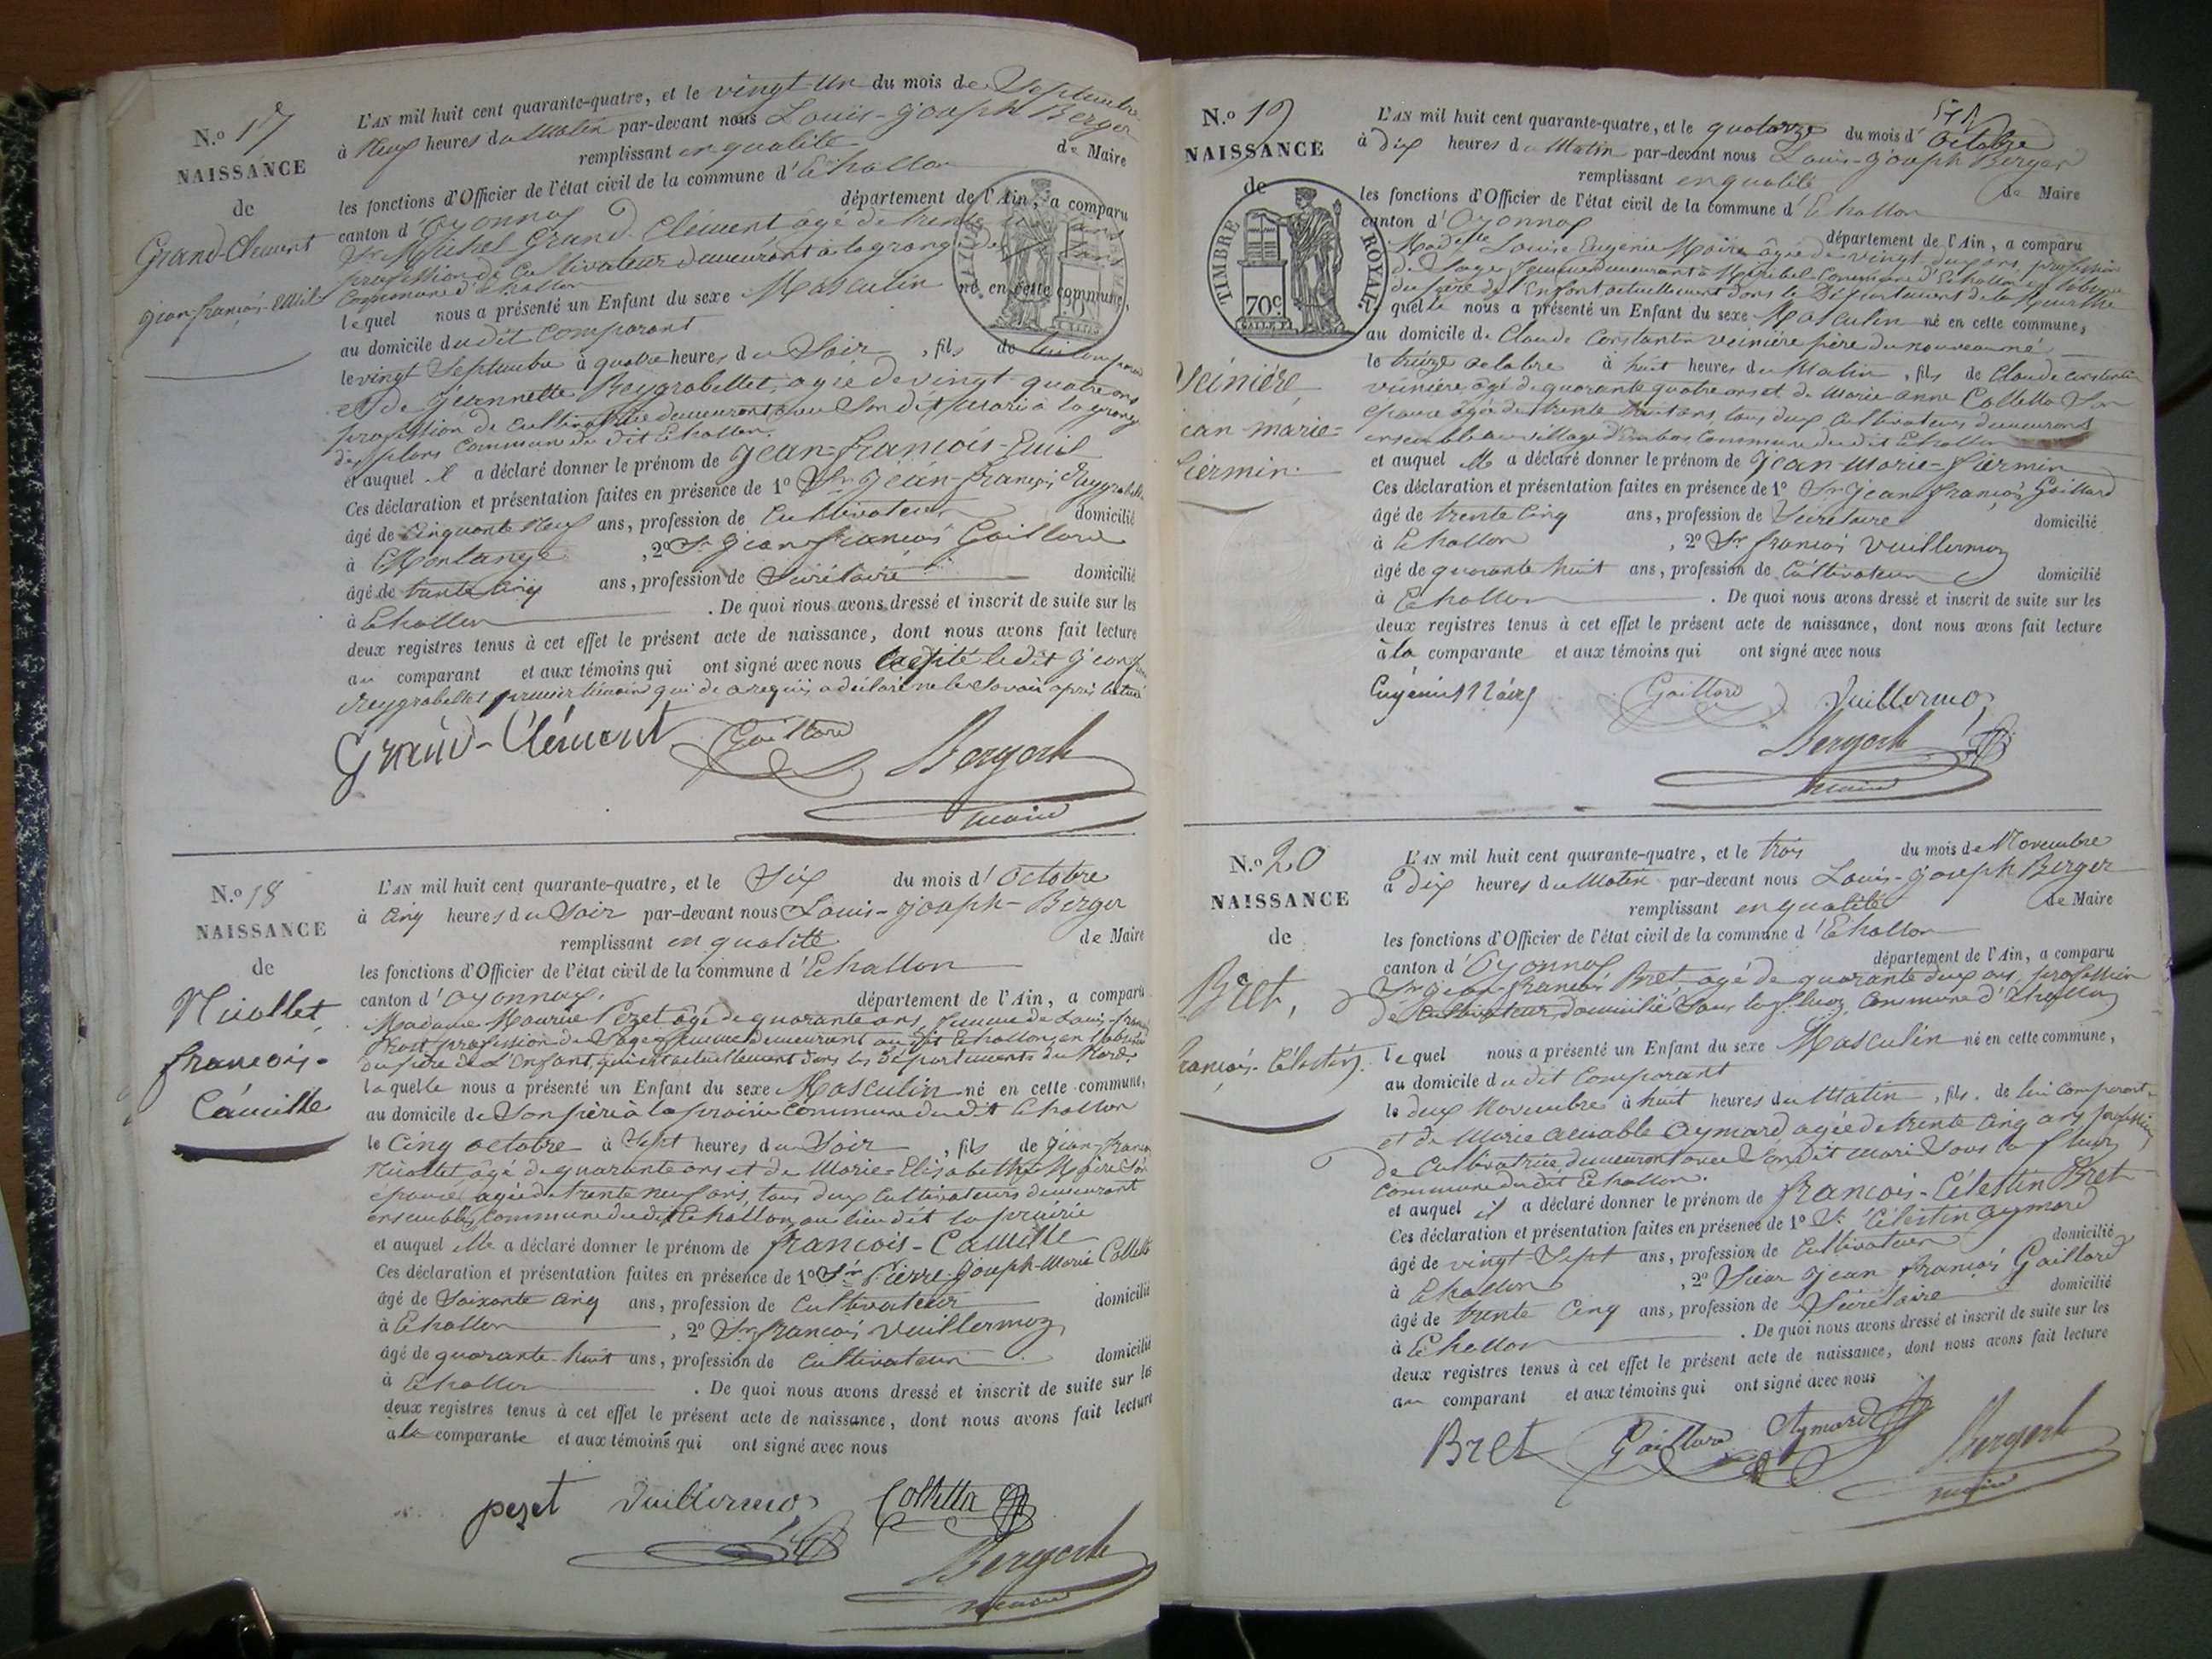 N.o 17
NAISSANCE
de
Grand-Clement
jean-françois-Emile
L'AN mil huit cent quarante-quatre, et le vingt un du mois de Septembre
à Neuf heures du Matin par-devant nous Louis-joseph Berger
remplissant en qualité de Maire
les fonctions d'Officier de l'état civil de la commune d'Echallon
canton d'Oyonnax département de l'Ain, a comparu
Sr Michel Grand-Clément agé de trente ans
profession de Cultivateur demeurant à la grange
Commune d'Echallon
lequel nous a présenté un Enfant du sexe Masculin né en cette commune,
au domicile du dit Comparant
le vingt Septembre à quatre heures du Soir, fils de lui Comparant
et de Jeannette Reygrobellet agée de vingt-quatre ans
profession de Cultivatrice demeurant avec Son dit Mari à la grange
Commune du dit Echallon.
et auquel il a déclaré donner le prénom de jean-françois-Emile
Ces déclaration et présentation faites en présence de 1o Sr jean-françois Reygrobellet
âgé de Cinquante Neuf ans, profession de Cultivateur domicilié
à Montange, 2o Sr jean françois Gaillard
âgé de trente cinq ans, profession de Secrétaire domicilié
à Echallon. De quoi nous avons dressé et inscrit de suite sur les
deux registres tenus à cet effet le présent acte de naissance, dont nous avons fait lecture
au comparant et aux témoins qui ont signé avec nous Excepté le dit jean
Reygrobellet premier témoin qui de ce requis a déclaré ne le Savoir après lecture
Grand-Clément Gaillard Berger
maire
N.o 18
NAISSANCE
de
Nicollet
françois-
Camille
L'AN mil huit cent quarante-quatre, et le Six du mois d'Octobre
à Cinq heures du Soir par-devant nous Louis-joseph-Berger
remplissant en qualité de Maire
les fonctions d'Officier de l'état civil de la commune d'Echallon
canton d'Oyonnax. département de l'Ain, a comparu
Madame Maurice Pezet âgé de quarante ans, femme de Louis
profession de Sage femme demeurant au dit Echallon, en l'absence
du père de L'Enfant, qui est actuellement dans les Départements du Nord
laquelle nous a présenté un Enfant du sexe Masculin né en cette commune,
au domicile de Son père à la prairie Commune du dit Echallon
le Cinq octobre à Sept heures du Soir, fils de jean-françois
Nicollet, âgé de quarante ans et de Marie-Elisabeth Maire Son
épouse, agée de trente neuf ans, tous deux Cultivateurs demeurant
ensemble, Commune du dit Echallon, au lieu dit la prairie
et auquel elle a déclaré donner le prénom de françois-Camille
Ces déclaration et présentation faites en présence de 1o Sr Pierre-joseph-Marie Colletta
âgé de Soixante Cinq ans, profession de Cultivateur domicilié
à Echallon, 2o Sr françois Vuillermoz
âgé de quarante-huit ans, profession de Cultivateur domicilié
à Echallon. De quoi nous avons dressé et inscrit de suite sur les
deux registres tenus à cet effet le présent acte de naissance, dont nous avons fait lecture
à la comparante et aux témoins qui ont signé avec nous
pezet Vuillermoz Colletta
Berger
maire
N.o 19
NAISSANCE
de
TIMBRE ROYAL
70c
Veinière,
jean-marie-
fiermin.
L'AN mil huit cent quarante-quatre, et le quatorze du mois d'Octobre
à Dix heures du Matin par-devant nous Louis-joseph Berger
remplissant en qualité de Maire
les fonctions d'Officier de l'état civil de la commune d'Echallon
canton d'Oyonnax département de l'Ain, a comparu
Madelle Louise Eugénie Maire âgée de vingt deux ans, profession
de Sage femme demeurant à Commune d'Echallon en l'absence
du père de l'Enfant actuellement dans le Département de la Meurthe
quelle nous a présenté un Enfant du sexe Masculin né en cette commune,
au domicile de Claude Constantin Veinière père du nouveau né
le treize octobre à huit heures du Matin, fils de Claude Constantin
Veinière âgé de quarante quatre ans et de Marie anne Colletta Son
épouse âgée de trente huit ans tous deux Cultivateurs demeurant
ensemble au village d'Embas Commune du dit Echallon
et auquel elle a déclaré donner le prénom de jean-Marie-fiermin
Ces déclaration et présentation faites en présence de 1o Sr jean françois Gaillard
âgé de trente cinq ans, profession de Secrétaire domicilié
à Echallon, 2o Sr françois Vuillermoz
âgé de quarante huit ans, profession de Cultivateur domicilié
à Echallon. De quoi nous avons dressé et inscrit de suite sur les
deux registres tenus à cet effet le présent acte de naissance, dont nous avons fait lecture
à la comparante et aux témoins qui ont signé avec nous
Eugénie Maire Gaillard Vuillermoz
Berger
maire
N.o 20
NAISSANCE
de
Bret,
françois-Célestin.
L'AN mil huit cent quarante-quatre, et le trois du mois de Novembre
à Dix heures du Matin par-devant nous Louis-joseph Berger
remplissant en qualité de Maire
les fonctions d'Officier de l'état civil de la commune d'Echallon
canton d'Oyonnax département de l'Ain, a comparu
Sr jean-françois Bret agé de quarante deux ans, profession
de Cultivateur, domicilié Sous la Commune d'Echallon
lequel nous a présenté un Enfant du sexe Masculin né en cette commune,
au domicile du dit Comparant
le deux Novembre à huit heures du Matin, fils de lui Comparant
et de Marie aimable Aymard agée de trente Cinq ans profession
de Cultivatrice, demeurant avec Son dit mari Sous la
Commune du dit Echallon.
et auquel il a déclaré donner le prénom de françois-Célestin Bret
Ces déclaration et présentation faites en présence de 1o Sr Célestin Aymard
âgé de vingt-Sept ans, profession de Cultivateur domicilié
à Echallon, 2o Sieur jean françois Gaillard
âgé de trente Cinq ans, profession de Secrétaire domicilié
à Echallon. De quoi nous avons dressé et inscrit de suite sur les
deux registres tenus à cet effet le présent acte de naissance, dont nous avons fait lecture
au comparant et aux témoins qui ont signé avec nous
Bret Gaillard Aymard Berger
maire